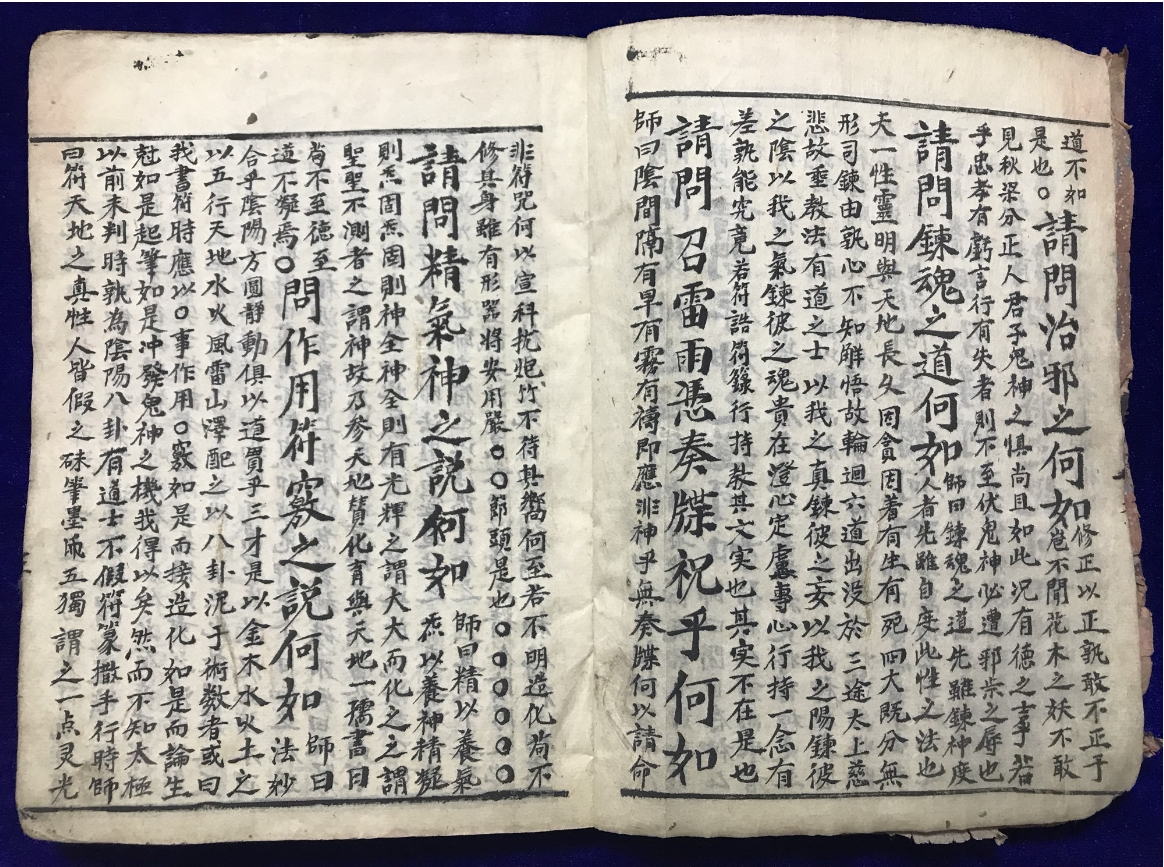 道不如
是也〇
請問治邪之何如
修正以正孰敢不正子
豈不聞花木之妖不敢
見秋梁分正人君子鬼神之惧尚且如此况有德之事若
乎忠孝有虧言行有失者則不至伏鬼神必遭邪祟之辱也
請問鍊魂之道何如
師曰鍊魂之道先雖鍊神度
人者先雖自度此性之法也
天一性靈明與天地長久因貪因着有生有死四大既分無
形司鍊由孰心不知解悟故輪迴六道出没於三途太上慈
悲故垂教法有道之士以我之真鍊彼之妄以我之陽鍊彼
之陰以我之氣鍊彼之魂貴在澄心定慮專心行持一念有
差孰能究竟若符誥符籙行持教其文实也其实不在是也
請問召雷雨憑奏牒祝乎何如
師曰陰間隔有旱有霧有禱即應非神乎無奏牒何以請命
非符咒何以宣科抗爼竹不待其嚮何至若不明造化苟不
修其身雖有形噐將安用嚴〇〇節頭是也〇〇〇〇〇〇
請問精氣神之說何如
師曰精以養氣
炁以養神精凝
則炁固炁固則神全神全則有光輝之謂大大而化之之謂
聖聖不測者之謂神故乃參天地贊化育與天地一孺書曰
苟不至德至
道不凝焉〇
問作用符竅之說何如
師曰
法妙
合乎陰陽方圓靜動俱以道貫乎三才是以金木水火土之
以五行天地水火風雷山澤配之以八卦泥于術數者或曰
我書符時應以〇事作用〇竅如是而接造化如是而論生
尅如是起筆如是冲發鬼神之機我得以矣然而不知太極
以前未判時孰為陰陽八卦有道士不假符篆撒手行時師
曰符天地之真性人皆假之硃筆墨帋五獨謂之一点灵光